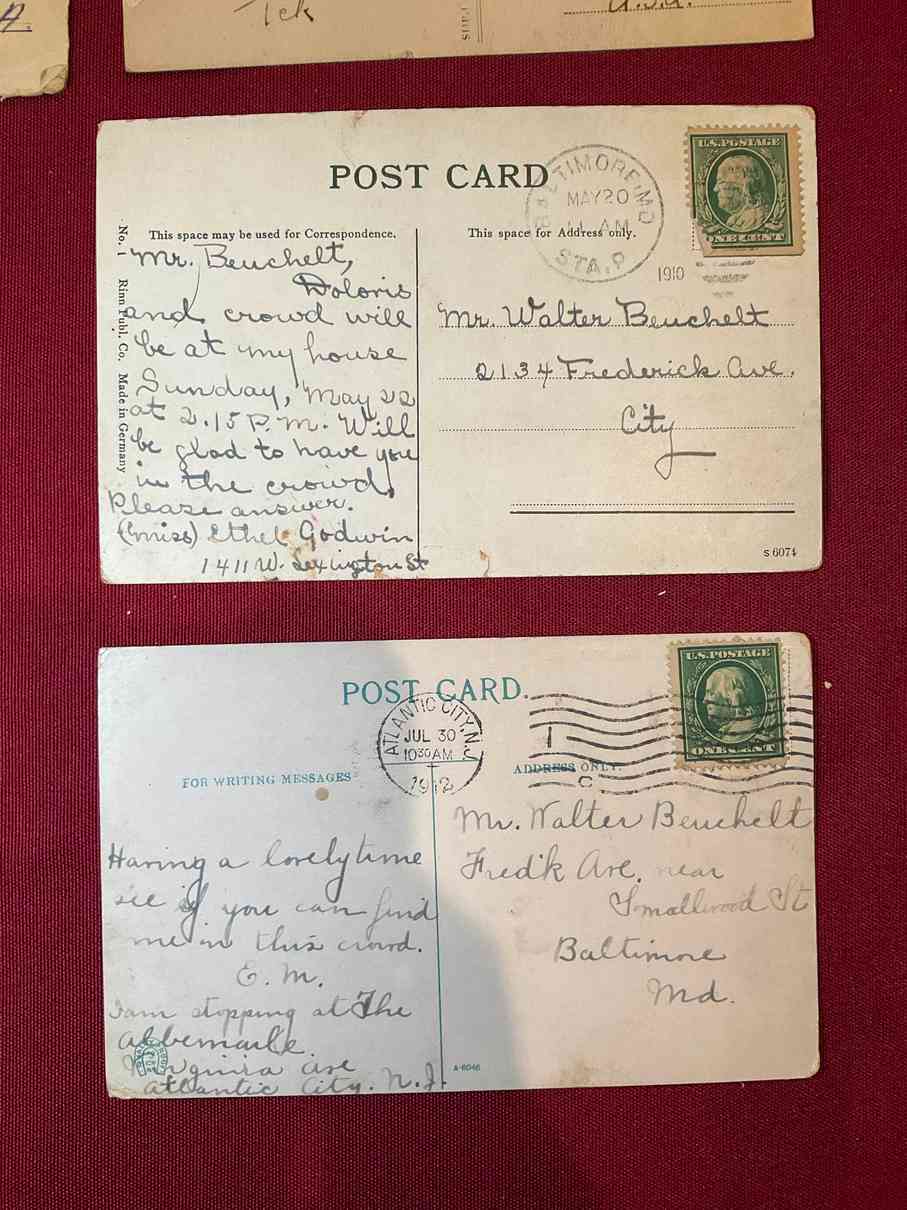 A.
Tek
U.S.A.
POST CARD
BALTIMORE, MD
MAY 20
11 AM
STA. P
1910
U.S. POSTAGE
ONE CENT
This space may be used for Correspondence.
This space for Address only.
No. 1 Rinn Publ. Co. Made in Germany
Mr. Beuchelt,
Doloris
and crowd will
be at my house
Sunday, May 22
at 2.15 P.M. Will
be glad to have you
in the crowd,
Please answer.
(Miss) Ethel Godwin
1411 W. Lexington St
Mr. Walter Beuchelt
2134 Frederick Ave.
City
S 6074
POST CARD.
ATLANTIC CITY, N.J.
JUL 30
10 30 AM
1912
1
C
U.S. POSTAGE
ONE CENT
FOR WRITING MESSAGES
ADDRESS ONLY.
Having a lovely time
see if you can find
me in this crowd.
E. M.
I am stopping at The
Albemarle
Virginia Ave
Atlantic City. N.J.
Mr. Walter Beuchelt
Fred'k Ave. near
Smallwood St
Baltimore
Md.
A-6046